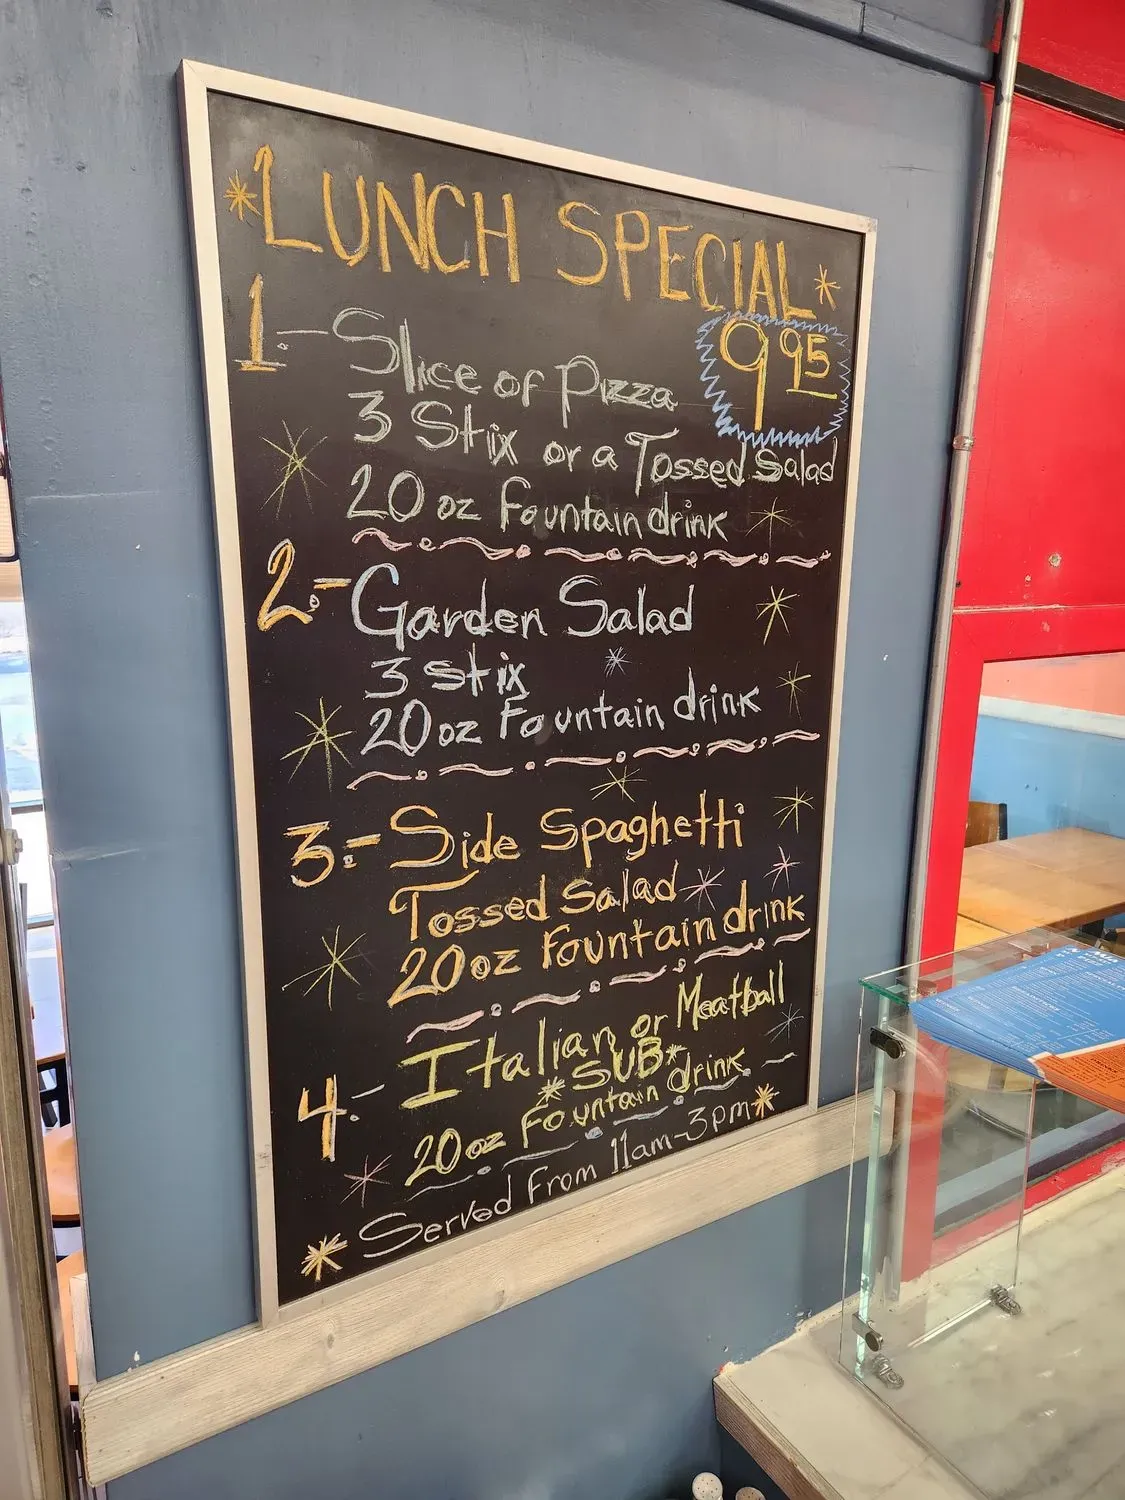 LUNCH SPECIAL
9 95
1.- Slice of Pizza
3 Stix or a Tossed Salad
20 oz Fountain drink
2.- Garden Salad
3 Stix
20 oz Fountain drink
3.- Side Spaghetti
Tossed Salad
20 oz Fountain drink
4.- Italian or Meatball
*SUB*
20 oz Fountain drink
Served From 11am-3pm